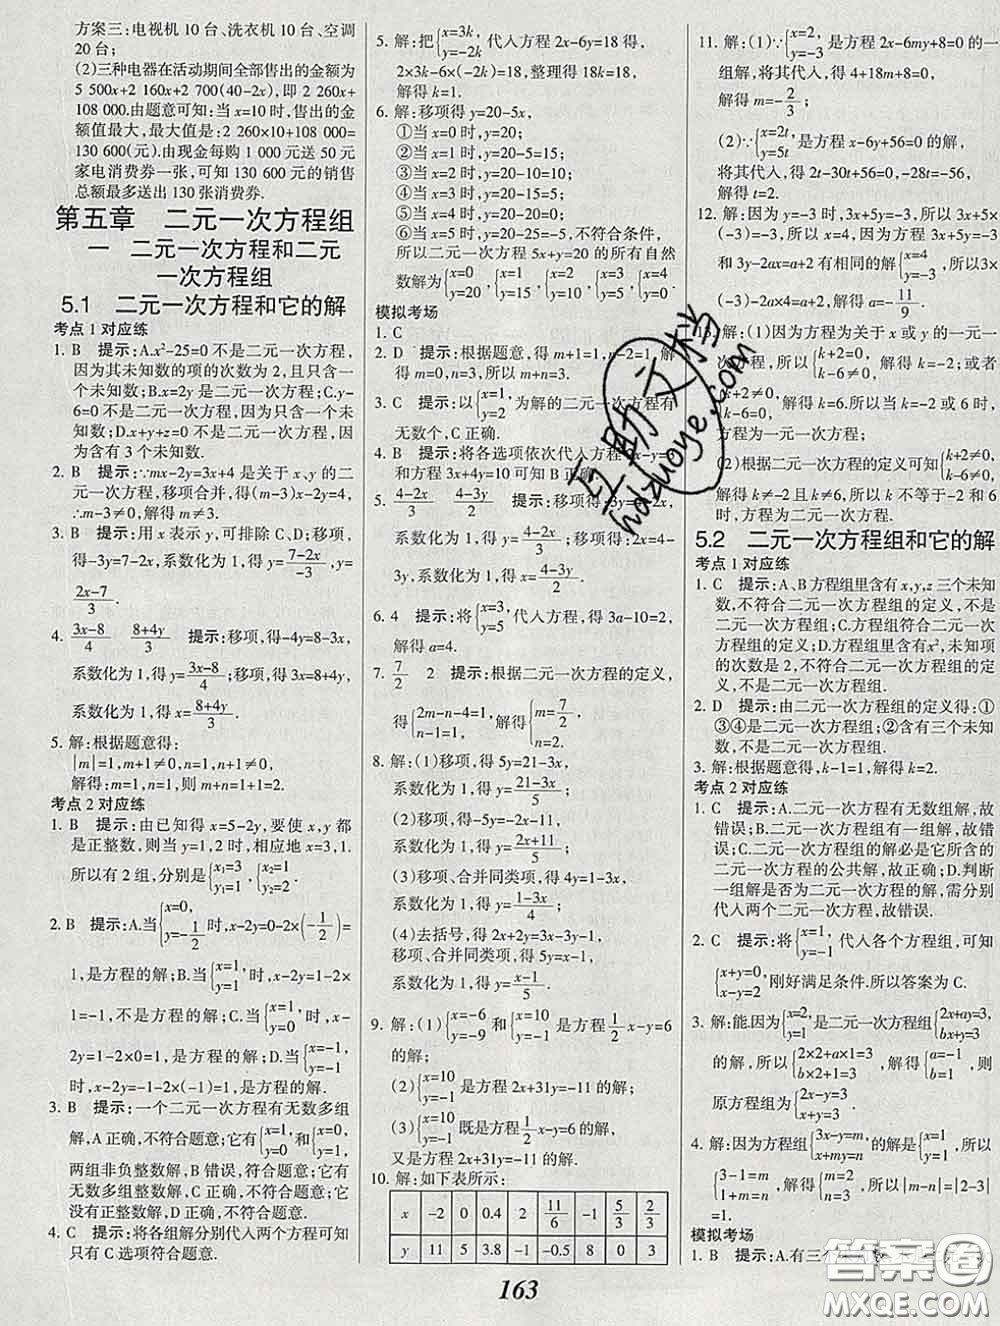 方案三:电视机 10 台、洗衣机 10 台、空调
20 台;
(2)三种电器在活动期间全部售出的金额为
5 500x+2 160x+2 700(40-2x),即 2 260x+
108 000.由题意可知:当 x=10 时,售出的金
额值最大,最大值为:2 260×10+108 000=
130 600(元).由现金每购 1 000 元送 50 元
家电消费券一张,可知 130 600 元的销售
总额最多送出 130 张消费券.
第五章 二元一次方程组
一 二元一次方程和二元
一次方程组
5.1 二元一次方程和它的解
考点 1 对应练
1. B 提示:A.x²-25=0 不是二元一次方程,
因为其未知数的项的次数为 2,且只含一个
未知数;B.x=2y 是二元一次方程;C.y-
6=0 不是二元一次方程,因为只含一个未
知数;D.x+y+z=0 不是二元一次方程,因
为含有 3 个未知数.
2. B 提示:∵mx-2y=3x+4 是关于 x、y 的二
元一次方程,移项合并,得(m-3)x-2y=4,
∴m-3≠0,解得 m≠3.
3. B 提示:用 x 表示 y,可排除 C、D;移项,
得-3y=7-2x,系数化为 1,得 y=(7-2x)/(-3),即 y=
(2x-7)/3.
4. (3x-8)/4 (8+4y)/3 提示:移项,得-4y=8-3x,
系数化为 1,得 y=(3x-8)/4;移项,得 3x=8+4y,
系数化为 1,得 x=(8+4y)/3.
5. 解:根据题意得:
|m|=1,m+1≠0,n=1,n+1≠0,
解得:m=1,n=1,则 m+n=1+1=2.
考点 2 对应练
1. B 提示:由已知得 x=5-2y,要使 x,y 都
是正整数,则当 y=1,2 时,相应地 x=3,1.
所以有 2 组,分别是{x₁=3, y₁=1,{x₂=1 y₂=2.
2. B 提示:A.当{x=0, y=-1/2 时,x-2y=0-2×(-1/2)=
1,是方程的解;B.当{x=1, y=1 时,x-2y=1-2×
1=-1,不是方程的解;C.当{x=1, y=0 时,x-
2y=1-2×0=1,是方程的解;D.当{x=-1, y=-1
时,x-2y=-1-2×(-1)=1,是方程的解.
3. B 提示:一个二元一次方程有无数多组
解,A 正确,不符合题意;它有{x=1, y=0 和{x=0, y=1
两组非负整数解,B 错误,符合题意;它有
无数多组整数解,C 正确,不符合题意;它
没有正整数解,D 正确,不符合题意.
4. C 提示:将各组解分别代入两个方程可知
只有 C 选项符合题意.
5. 解:把{x=3k, y=-2k 代入方程 2x-6y=18 得,
2×3k-6×(-2k)=18,整理得 18k=18,
解得 k=1.
6. 解:移项得 y=20-5x,
①当 x=0 时,y=20;
②当 x=1 时,y=20-5=15;
③当 x=2 时,y=20-10=10;
④当 x=3 时,y=20-15=5;
⑤当 x=4 时,y=20-20=0;
⑥当 x=5 时,y=20-25=-5,不符合条件,
所以二元一次方程 5x+y=20 的所有自然
数解为{x=0 y=20,{x=1 y=15,{x=2 y=10,{x=3 y=5,{x=4 y=0.
模拟考场
1. C
2. D 提示:根据题意,得 m+1=1,n-2=1,
解得 m=0,n=3,所以 m+n=3.
3. C 提示:以{x=1, y=2 为解的二元一次方程有
无数个,C 正确.
4. B 提示:将各选项依次代入方程 x-y=
和方程 3x+4y=10 可知 B 正确.
5. (4-2x)/3 (4-3y)/2 提示:移项,得 3y=4-2x,
系数化为 1,得 y=(4-2x)/3;移项,得 2x=4-
3y,系数化为 1,得 x=(4-3y)/2.
6. 4 提示:将{x=3, y=5 代入方程,得 3a-10=2,
解得 a=4.
7. 7/2 2 提示:根据二元一次方程的定义,
得{2m-n-4=1, n-1=1, 解得{m=7/2, n=2.
8. 解:(1)移项,得 5y=21-3x,
系数化为 1,得 y=(21-3x)/5;
(2)移项,得-5y=-2x-11,
系数化为 1,得 y=(2x+11)/5;
(3)移项、合并同类项,得 4y=1-3x,
系数化为 1,得 y=(1-3x)/4;
(4)去括号,得 2x+2y=3x-3y-1,
移项、合并同类项,得 5y=x-1,
系数化为 1,得 y=(x-1)/5.
9. 解:(1){x=-6 y=-9 和{x=10 y=-1 是方程 1/2 x-y=6
的解;
(2){x=10 y=-1 是方程 2x+31y=-11 的解;
(3){x=10 y=-1 既是方程 1/2 x-y=6 的解,
又是方程 2x+31y=-11 的解.
10. 解:如下表所示:
x -2 0 0.4 2 11/6 -1 5/3 2/3
y 11 5 3.8 -1 -0.5 8 0 3
11. 解:(1)∵{x=2, y=-3 是方程 2x-6my+8=0 的一
组解,将其代入,得 4+18m+8=0,
解得 m=-2/3;
(2)∵{x=2t y=5t 是方程 x-6y+56=0 的解,
将其代入,得 2t-30t+56=0,-28t=-56,
解得 t=2.
12. 解:因为 y=-3,3x+5y=-3,所以 3x+5×
(-3)=-3,所以 x=4,因为方程 3x+5y=-3
和 3x-2ax=a+2 有相同的解{x=4, y=-3, 所以 3×
(-3)-2a×4=a+2,解得 a=-11/9.
13. 解:(1)因为方程为关于 x 或 y 的一元一
次方程,所以{k+2=0, k-6≠0, 解得 k=-2,或者
{k+2≠0, k-6=0, 解得 k=6.所以当 k=-2 或 6 时,
方程为一元一次方程.
(2)根据二元一次方程的定义可知{k+2≠0, k-6≠0,
解得 k≠-2 且 k≠6.所以 k 不等于-2 和 6
时,方程为二元一次方程.
5.2 二元一次方程组和它的解
考点 1 对应练
1. C 提示:A、B 方程组里含有 x,y,z 三个未知
数,不符合二元一次方程组的定义,不是
二元一次方程组;C.方程组符合二元一次
方程组的定义;D.方程组里含有x²,未知
项的次数是 2,不符合二元一次方程组的定
义,不是二元一次方程组.
2. D 提示:由二元一次方程组的定义得:①
③④是二元一次方程组;②含有三个未知
数,不是二元一次方程组.
3. 解:根据题意,得 k-1=1,解得 k=2.
考点 2 对应练
1. C 提示:A.二元一次方程有无数组解,故
错误;B.二元一次方程组有一组解,故错
误;C.二元一次方程组的解必是它所含的
二元一次方程的公共解,故正确;D.判断
一组解是否为二元一次方程的解,需分别
代入两个二元一次方程,故错误.
2. C 提示:将{x=1, y=-1 代入各个方程组,可知
{x+y=0, x-y=2 刚好满足条件.所以答案为 C.
3. 解:能.因为{x=2, y=1 是二元一次方程组{2x+ay=3, bx+y=3
的解,所以{2×2+a×1=3 b×2+1=3 ,解得{a=-1, b=1 所以
原方程组为{2x-y=3 x+y=3.
4. 解:因为方程组{3x-y=m, x+my=n 的解是{x=1, y=1, 所以
{3-1=m 1+m=n ,解得{m=2 n=3 ,所以|m-n|=|2-3|
=1.
模拟考场
1. B 提示:A.有三个
163
互助文档
hdzuoye.com
答案圈
MXQE.COM